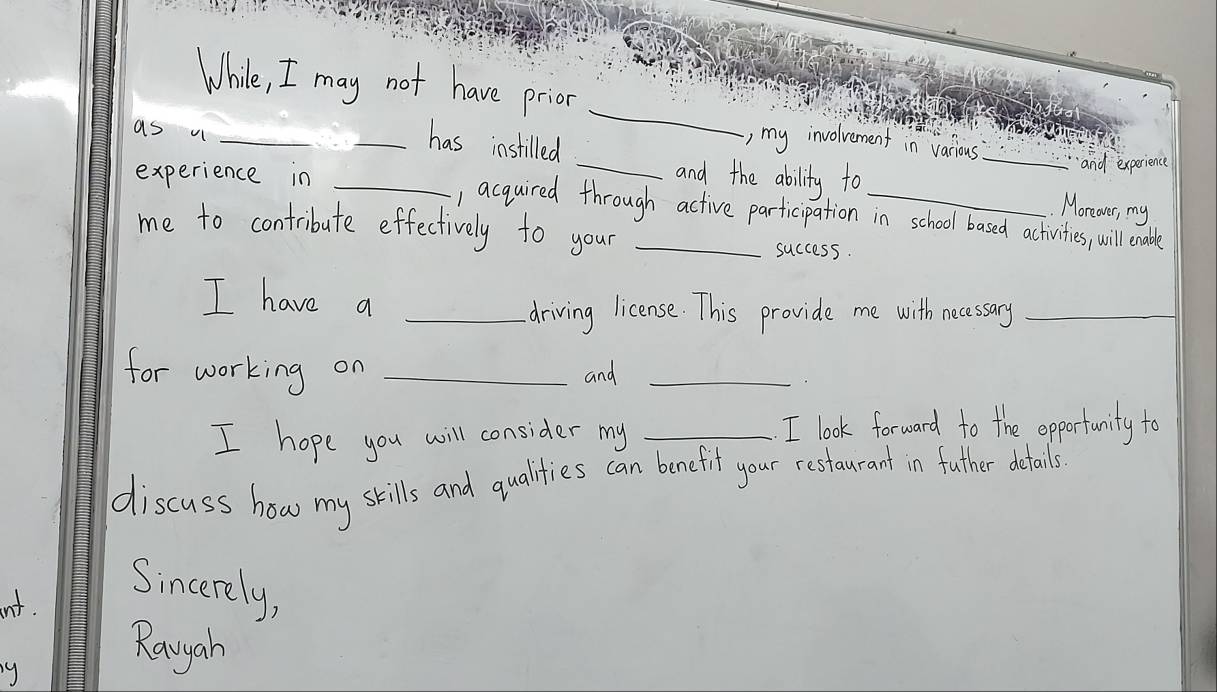 While, I may not have prior ________, my involvement in various ________ and experience
as a ________ has instilled ________ and the ability to ________. Moreover, my
experience in ________, acquired through active participation in school based activities, will enable
me to contribute effectively to your ________ success.
I have a ________ driving license. This provide me with necessary ________
for working on ________ and ________.
I hope you will consider my ________. I look forward to the opportunity to
discuss how my skills and qualities can benefit your restaurant in futher details.
Sincerely,
Ravyah